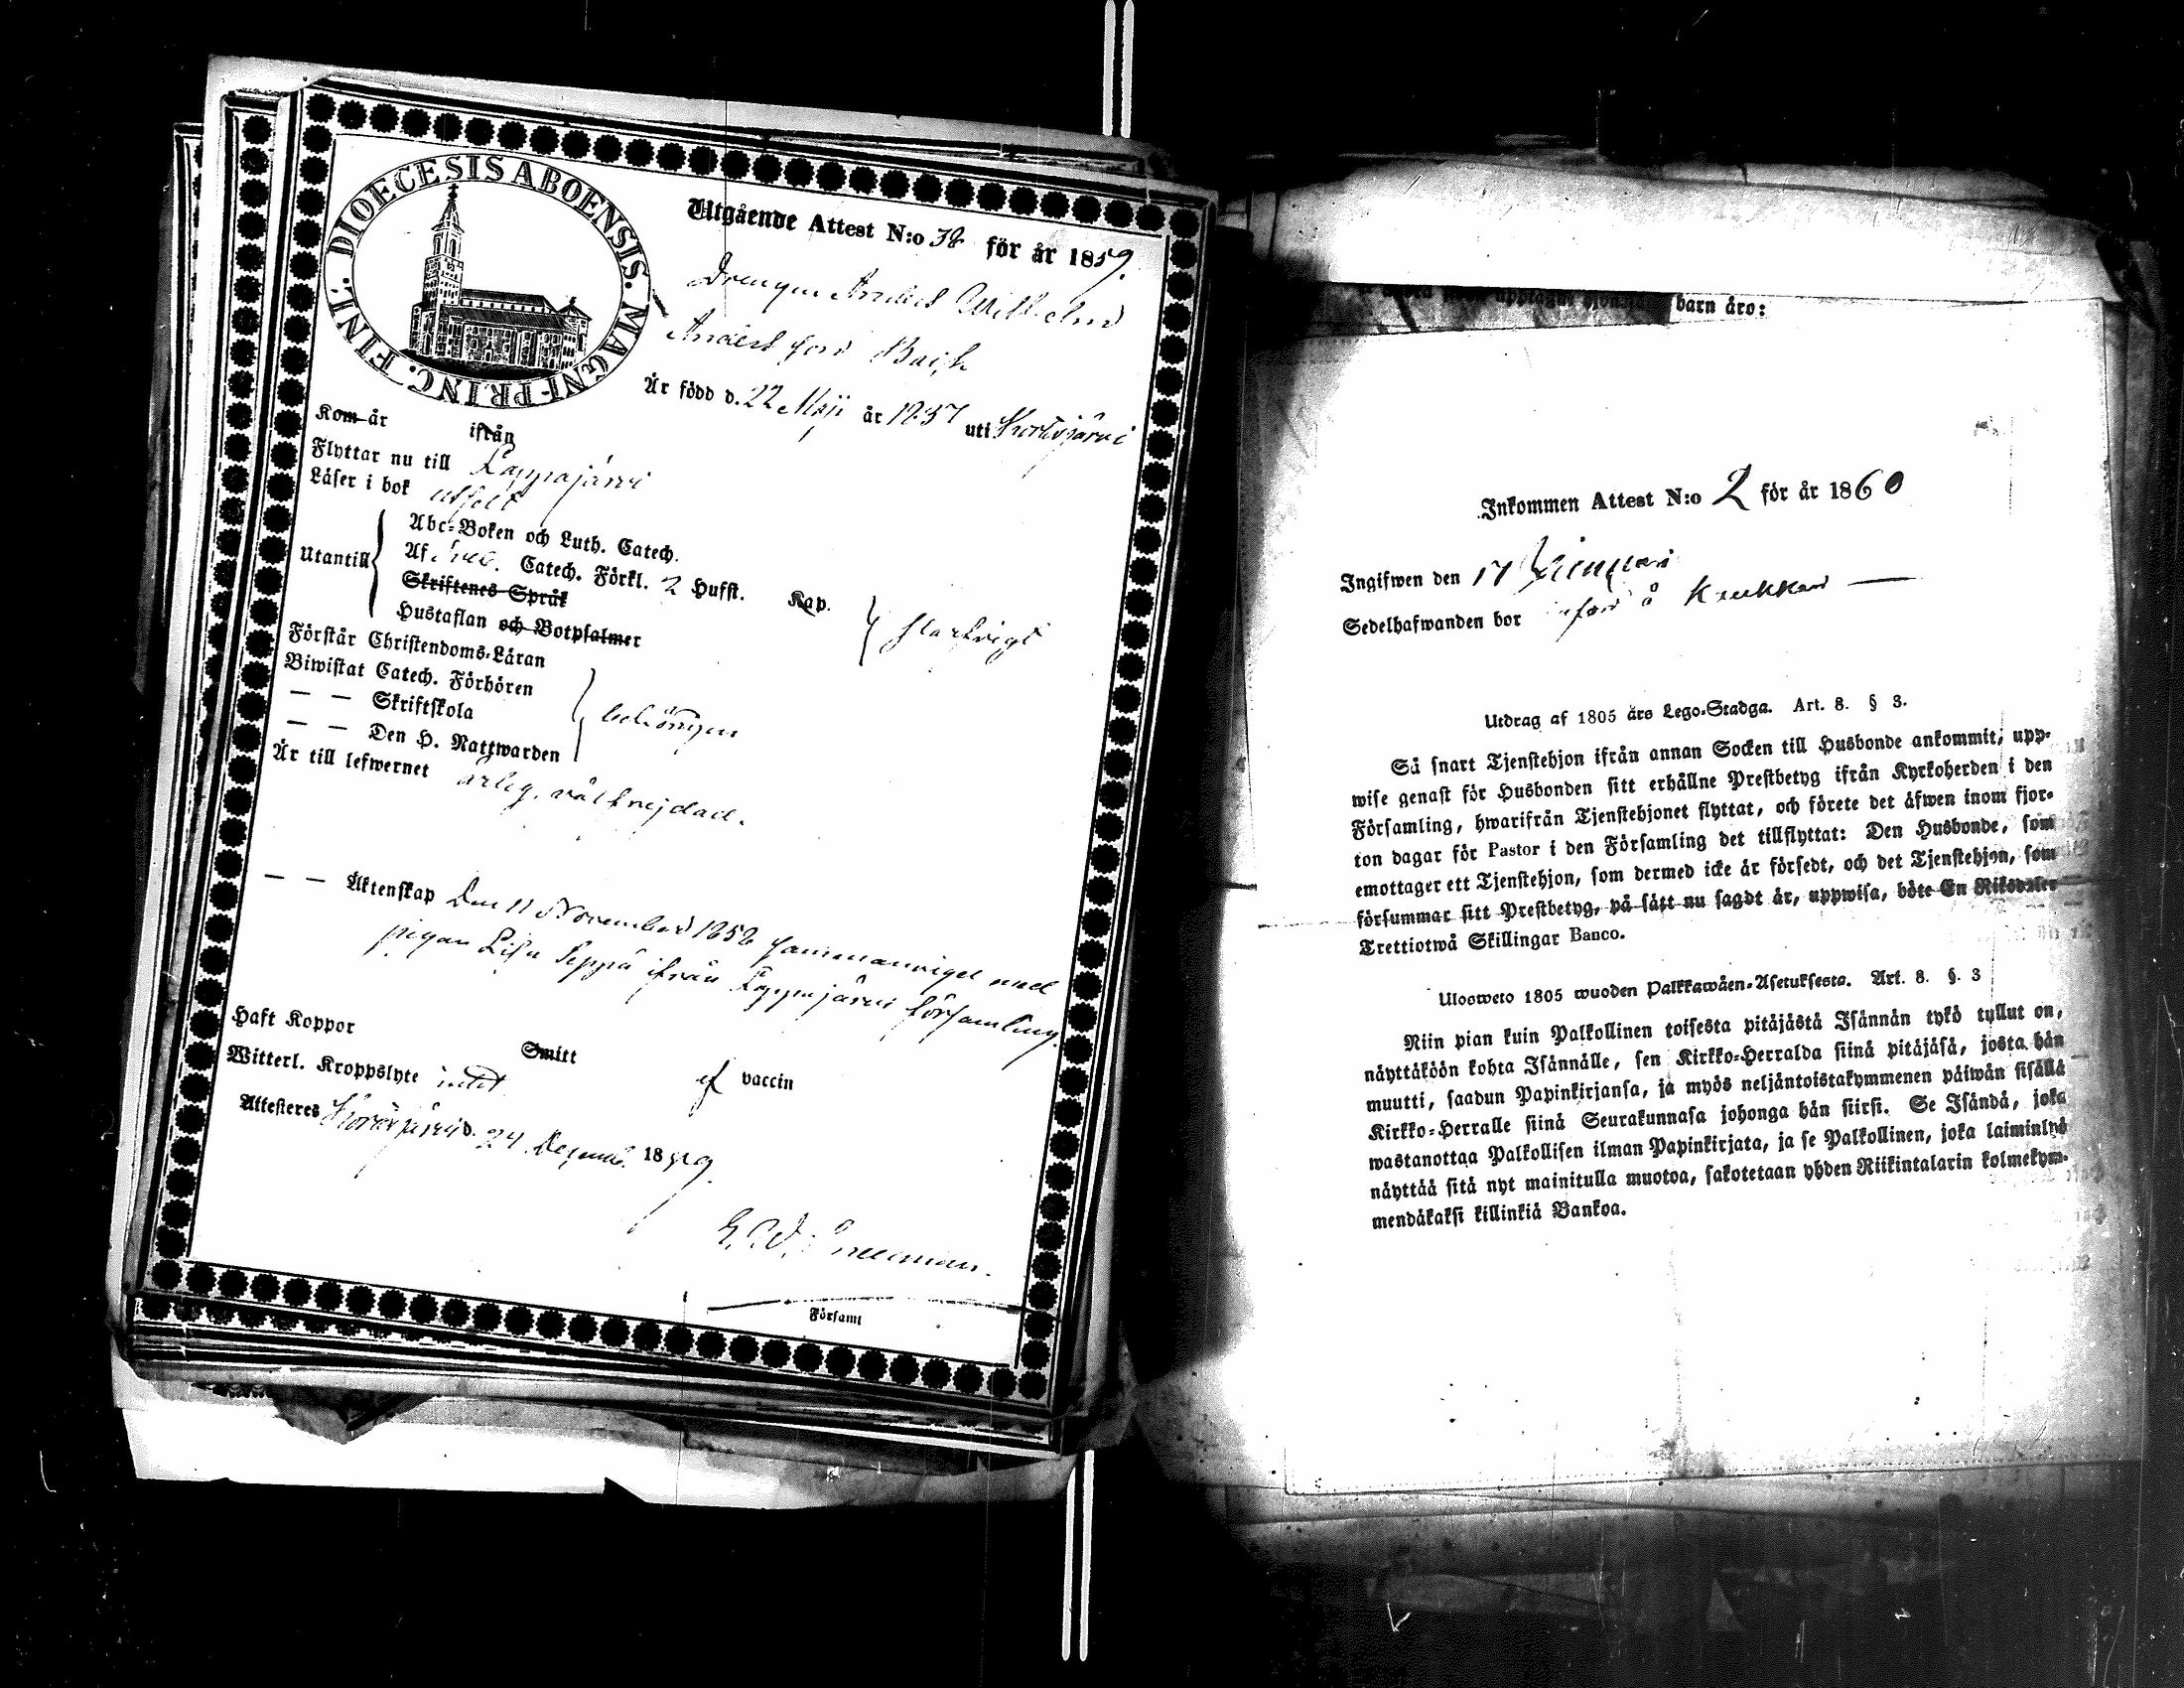 DIOECESIS ABOENSIS. MAGNI PRINC. FINL.
Utgående Attest N:o 38 för år 1859.
Drengen Anders Wilhelm
Anders son
Är född d. 22 Maji år 1837 uti Kortesjärvi
Kom år ifrån
Flyttar nu till Lappajärvi
Läser i bok
Utantill
Abc-Boken och Luth. Catech.
Af Catech. Förkl. 2 Hufst. Kap.
Skriftenes Språk
Hustaflan och Botpsalmer
försvarligt
Förstår Christendoms-Läran
Biwistat Catech. Förhören
— — Skriftskola
— — Den H. Nattwarden
behörigen
Är till lefwernet ärlig, välfrejdad.
— — Äktenskap Den 11 November 1858 sammanvigd med
pigan Lisa Seppä ifrån Lappajärvi församling.
Haft Koppor Smitt ef vaccin
Witterl. Kroppslyte intet
Attesteras Kortesjärvi d. 24 Decemb. 1859.
Församl
barn äro:
Inkommen Attest N:o 2 för år 1860
Ingifwen den 17 Januari
Sedelhafwanden bor å
Utdrag af 1805 års Lego-Stadga. Art. 8. § 3.
Så snart Tjenstehjon ifrån annan Socken till Husbonde ankommit, upp-
wise genast för Husbonden sitt erhållne Prestbetyg ifrån Kyrkoherden i den
Församling, hwarifrån Tjenstehjonet flyttat, och förete det äfwen inom fjor-
ton dagar för Pastor i den Församling det tillflyttat: Den Husbonde, som
emottager ett Tjenstehjon, som dermed icke är försedt, och det Tjenstehjon, som
försummar sitt Prestbetyg, på sätt nu sagdt är, uppwisa, böte En Riksdaler
Trettiotwå Skillingar Banco.
Ulosweto 1805 wuoden Palkkawäen-Asetuksesta. Art. 8. §. 3
Niin pian kuin Palkollinen toisesta pitäjästä Isännän tykö tullut on,
näyttäköön kohta Isännälle, sen Kirkko-Herralda siinä pitäjäsä, josta hän
muutti, saadun Papinkirjansa, ja myös neljäntoistakymmenen päiwän sisällä
Kirkko-Herralle siinä Seurakunnasa johonga hän siirsi. Se Isändä, joka
wastanottaa Palkollisen ilman Papinkirjata, ja se Palkollinen, joka laiminlyö
näyttää sitä nyt mainitulla muotoa, sakotetaan yhden Riikintalarin kolmekym-
mendäkaksi killinkiä Bankoa.